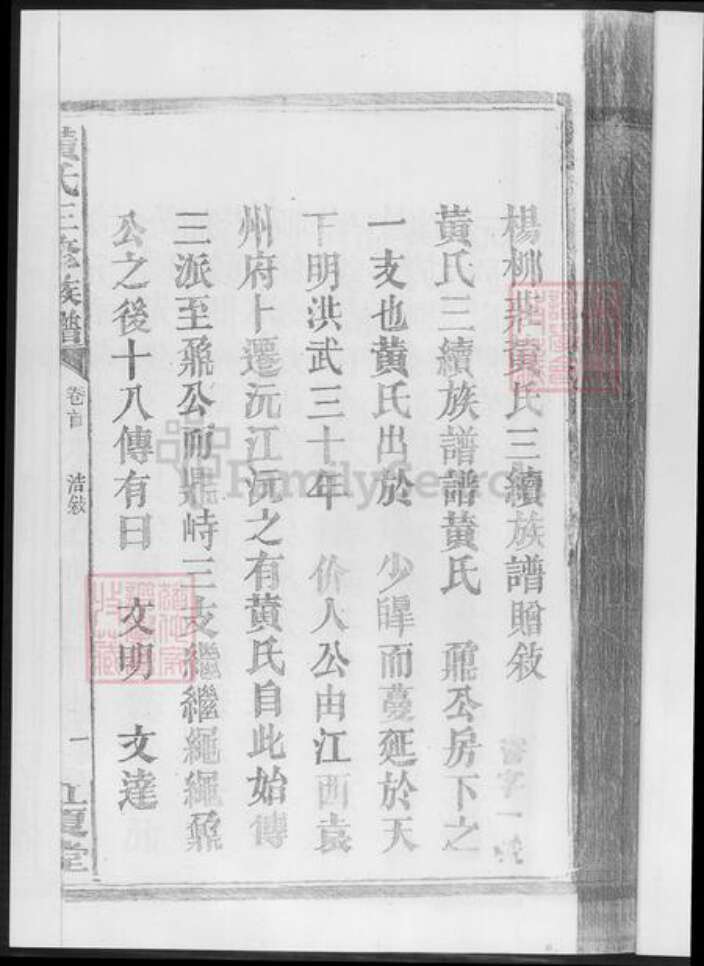 楊柳莊黃氏三續族譜贈敘
黃氏三續族譜譜黃氏 鼐公房下之
一支也黃氏出於 少皞而蔓延於天
下明洪武三十年 价人公由江西袁
州府卜遷沅江沅之有黃氏自此始傳
三派至鼐公而鼎峙三支繼繼繩繩鼐
公之後十八傳有曰 文明 文達
黃氏三修族譜
卷首
浩敘
一
江夏堂
FamilySearch